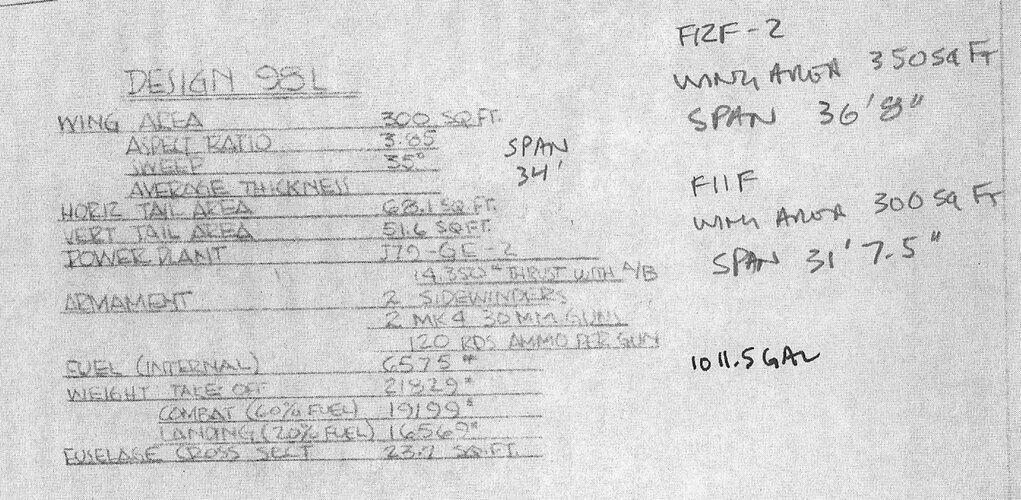 DESIGN 98L
WING AREA 300 SQ.FT.
ASPECT RATIO 3.85
SWEEP 35°
AVERAGE THICKNESS
HORIZ TAIL AREA 68.1 SQ.FT.
VERT TAIL AREA 51.6 SQ.FT.
POWER PLANT J79-GE-2
14,350# THRUST WITH A/B
ARMAMENT 2 SIDEWINDERS
2 MK4 30MM GUNS
120 RDS AMMO PER GUN
FUEL (INTERNAL) 6575#
WEIGHT TAKE OFF 21829#
COMBAT (60% FUEL) 19199#
LANDING (20% FUEL) 16569#
FUSELAGE CROSS SECT 23.7 SQ.FT.
SPAN
34'
F12F-2
WING AREA 350 SQ FT
SPAN 36'8"
F11F
WING AREA 300 SQ FT
SPAN 31' 7.5"
1011.5 GAL